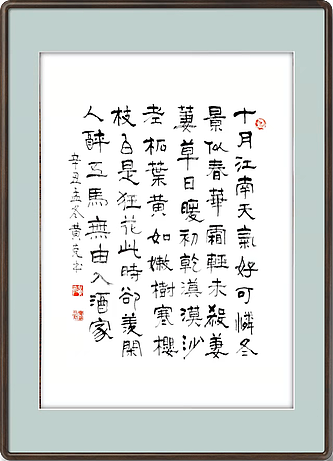 十月江南天氣好可憐冬
景似春華霜輕未殺萋
萋草日暖初乾漠漠沙
老柘葉黃如嫩樹寒櫻
枝白是狂花此時卻羨閑
人醉五馬無由入酒家
辛丑孟冬黃